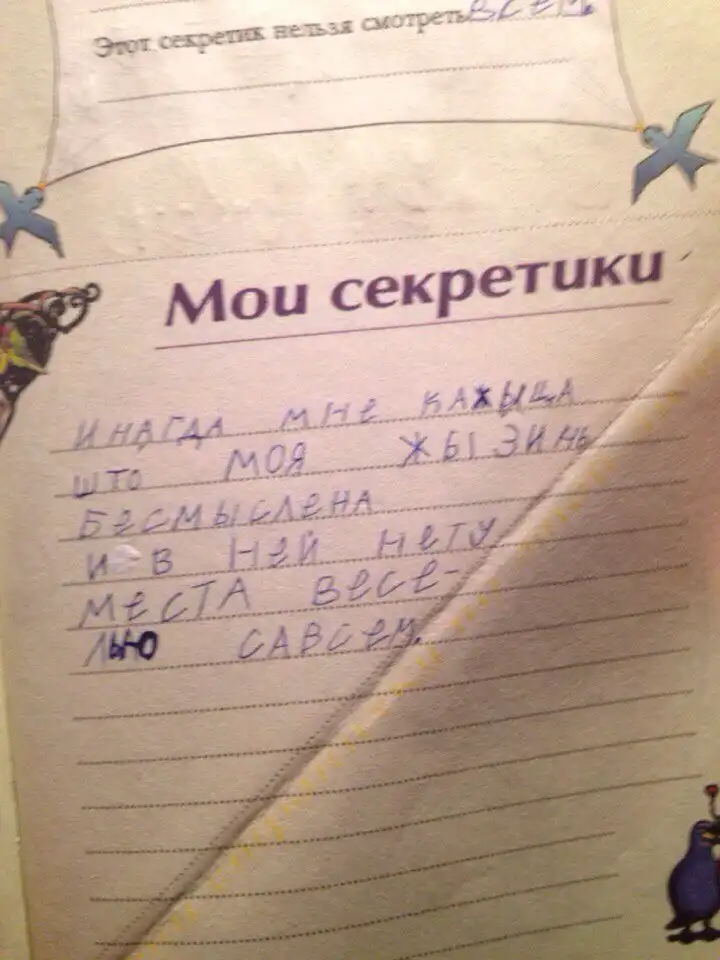 Этот секретик нельзя смотреть ВСЕМ.
Мои секретики
ИНАГДА МНЕ КАЖЫЦА
ШТО МОЯ ЖЫЗИНЬ
БЕСМЫСЛЕНА
И В НЕЙ НЕТУ
МЕСТА ВЕСЕ-
ЛЬЮ САВСЕМ.